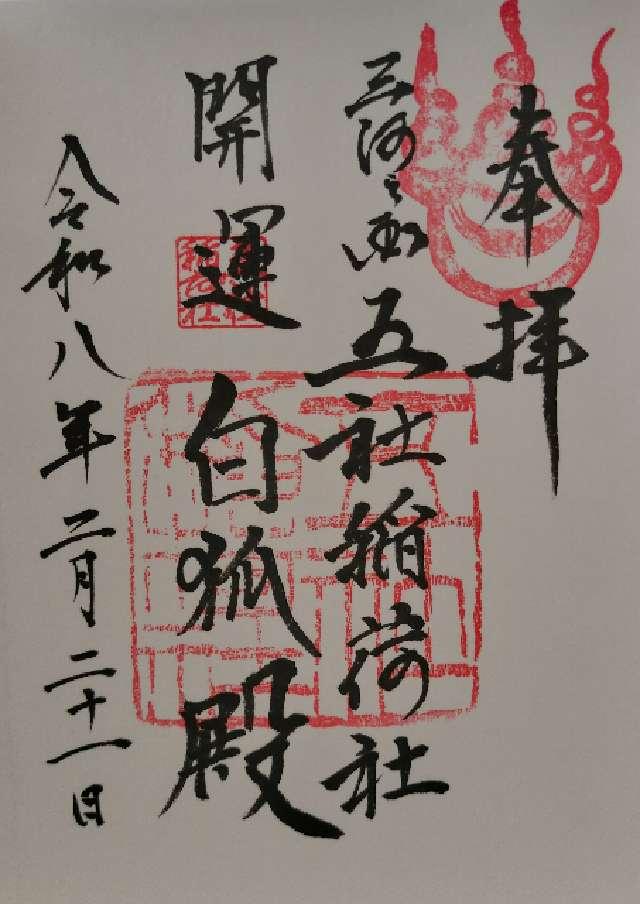 奉拝
三河之国 五社稲荷社
開運 白狐殿
令和八年二月二十一日